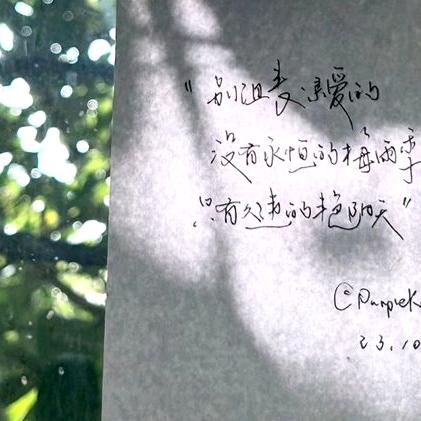 "别沮丧 亲爱的
没有永恒的梅雨季
只有久违的艳阳天"
@PurpleK
23.10